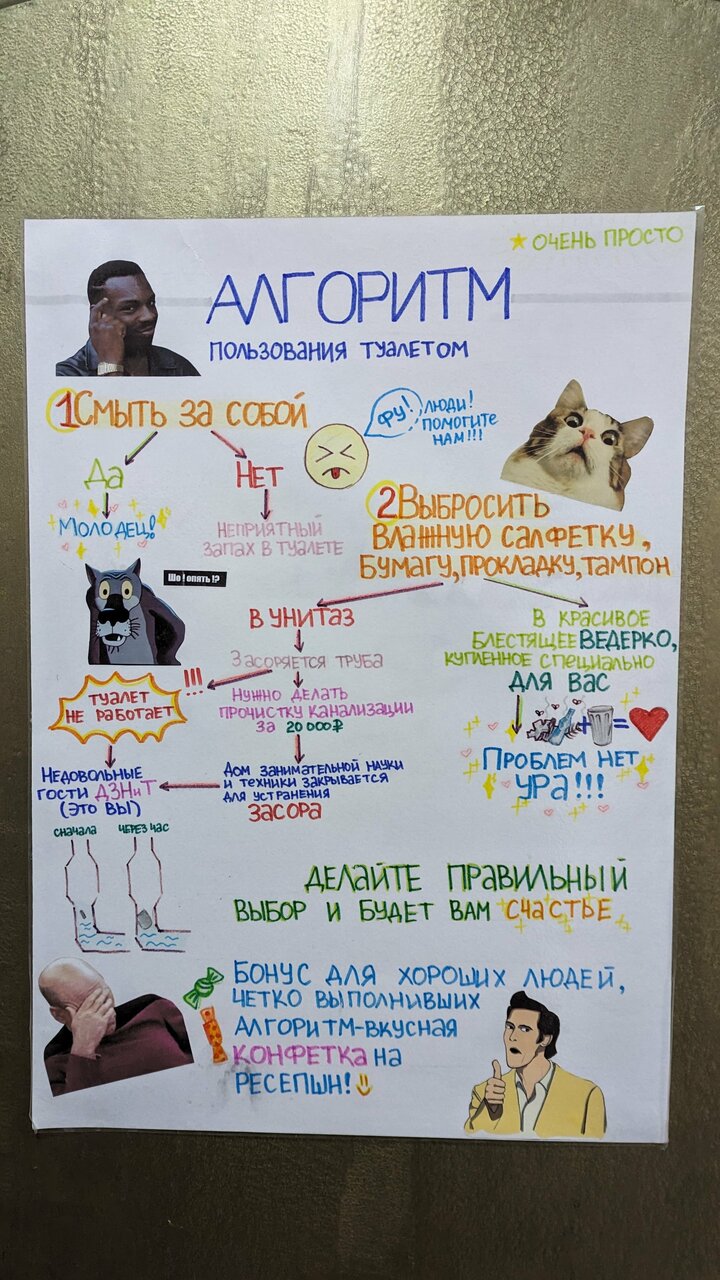 ★ ОЧЕНЬ ПРОСТО
АЛГОРИТМ
ПОЛЬЗОВАНИЯ ТУАЛЕТОМ
1 СМЫТЬ ЗА СОБОЙ
ФУ! ЛЮДИ!
ПОМОГИТЕ
НАМ!!!
ДА
НЕТ
МОЛОДЕЦ!
НЕПРИЯТНЫЙ
ЗАПАХ В ТУАЛЕТЕ
Шо ! опять !?
2 ВЫБРОСИТЬ
ВЛАЖНУЮ САЛФЕТКУ,
БУМАГУ, ПРОКЛАДКУ, ТАМПОН
В УНИТАЗ
ЗАСОРЯЕТСЯ ТРУБА
!!!
ТУАЛЕТ
НЕ РАБОТАЕТ
НУЖНО ДЕЛАТЬ
ПРОЧИСТКУ КАНАЛИЗАЦИИ
ЗА 20 000 ₽
ДОМ ЗАНИМАТЕЛЬНОЙ НАУКИ
И ТЕХНИКИ ЗАКРЫВАЕТСЯ
ДЛЯ УСТРАНЕНИЯ
ЗАСОРА
НЕДОВОЛЬНЫЕ
ГОСТИ ДЗНиТ
(ЭТО ВЫ)
СНАЧАЛА ЧЕРЕЗ ЧАС
В КРАСИВОЕ
БЛЕСТЯЩЕЕ ВЕДЕРКО,
КУПЛЕННОЕ СПЕЦИАЛЬНО
ДЛЯ ВАС
+ =
ПРОБЛЕМ НЕТ
УРА!!!
ДЕЛАЙТЕ ПРАВИЛЬНЫЙ
ВЫБОР И БУДЕТ ВАМ СЧАСТЬЕ
БОНУС ДЛЯ ХОРОШИХ ЛЮДЕЙ,
ЧЕТКО ВЫПОЛНИВШИХ
АЛГОРИТМ-ВКУСНАЯ
КОНФЕТКА НА
РЕСЕПШН!